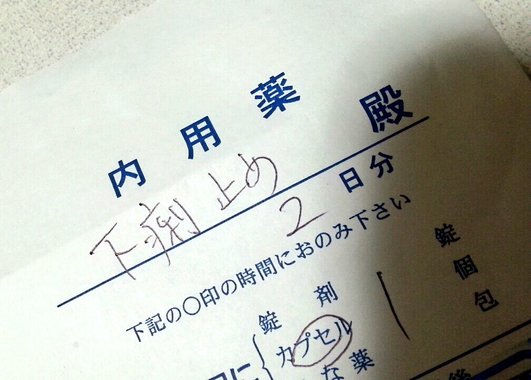 内用薬
殿
下痢止め
2 日分
下記の○印の時間におのみ下さい
錠剤
カプセル
な薬
に
錠
個
包